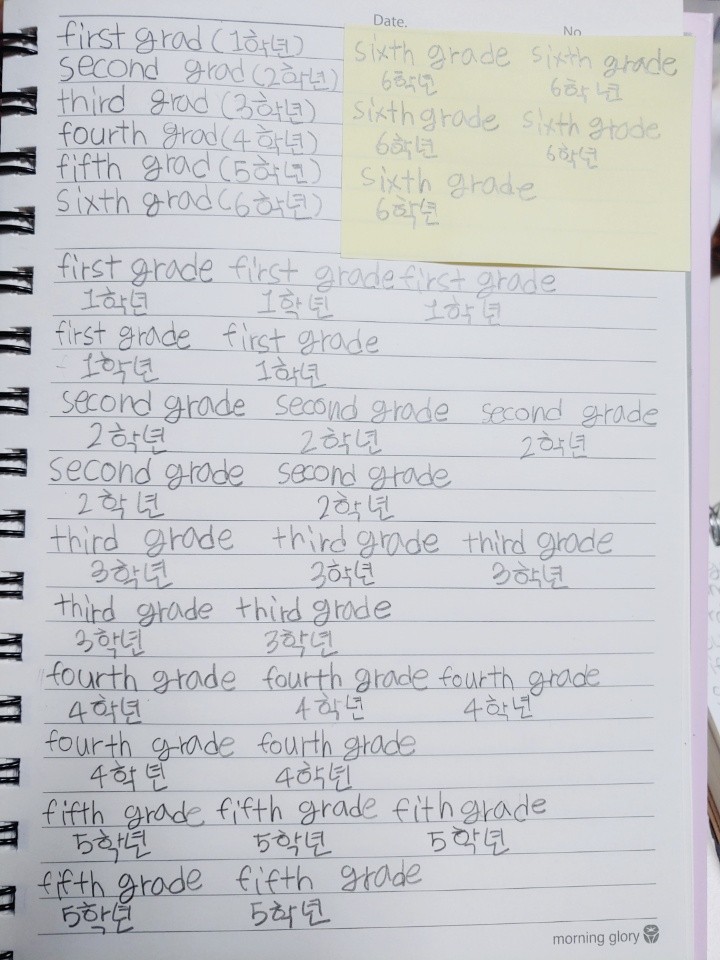 Date.
No
first grad (1학년)
second grad (2학년)
third grad (3학년)
fourth grad (4학년)
fifth grad (5학년)
sixth grad (6학년)
sixth grade sixth grade
6학년 6학년
sixth grade sixth grade
6학년 6학년
sixth grade
6학년
first grade first grade first grade
1학년 1학년 1학년
first grade first grade
1학년 1학년
second grade second grade second grade
2학년 2학년 2학년
second grade second grade
2학년 2학년
third grade third grade third grade
3학년 3학년 3학년
third grade third grade
3학년 3학년
fourth grade fourth grade fourth grade
4학년 4학년 4학년
fourth grade fourth grade
4학년 4학년
fifth grade fifth grade fith grade
5학년 5학년 5학년
fifth grade fifth grade
5학년 5학년
morning glory